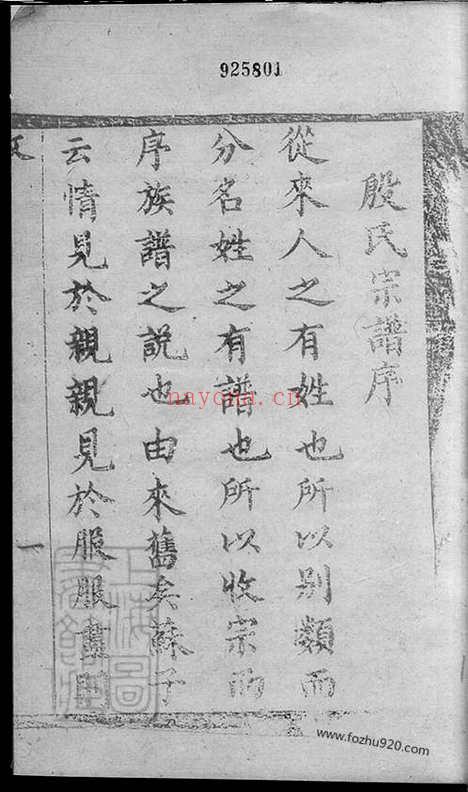 925801
殷氏宗譜序
從來人之有姓也所以别類而
分名姓之有譜也所以收宗而
序族譜之說也由來舊矣蘇子
云情見於親親見於服服
一
nayona.cn
www.fozhu920.com